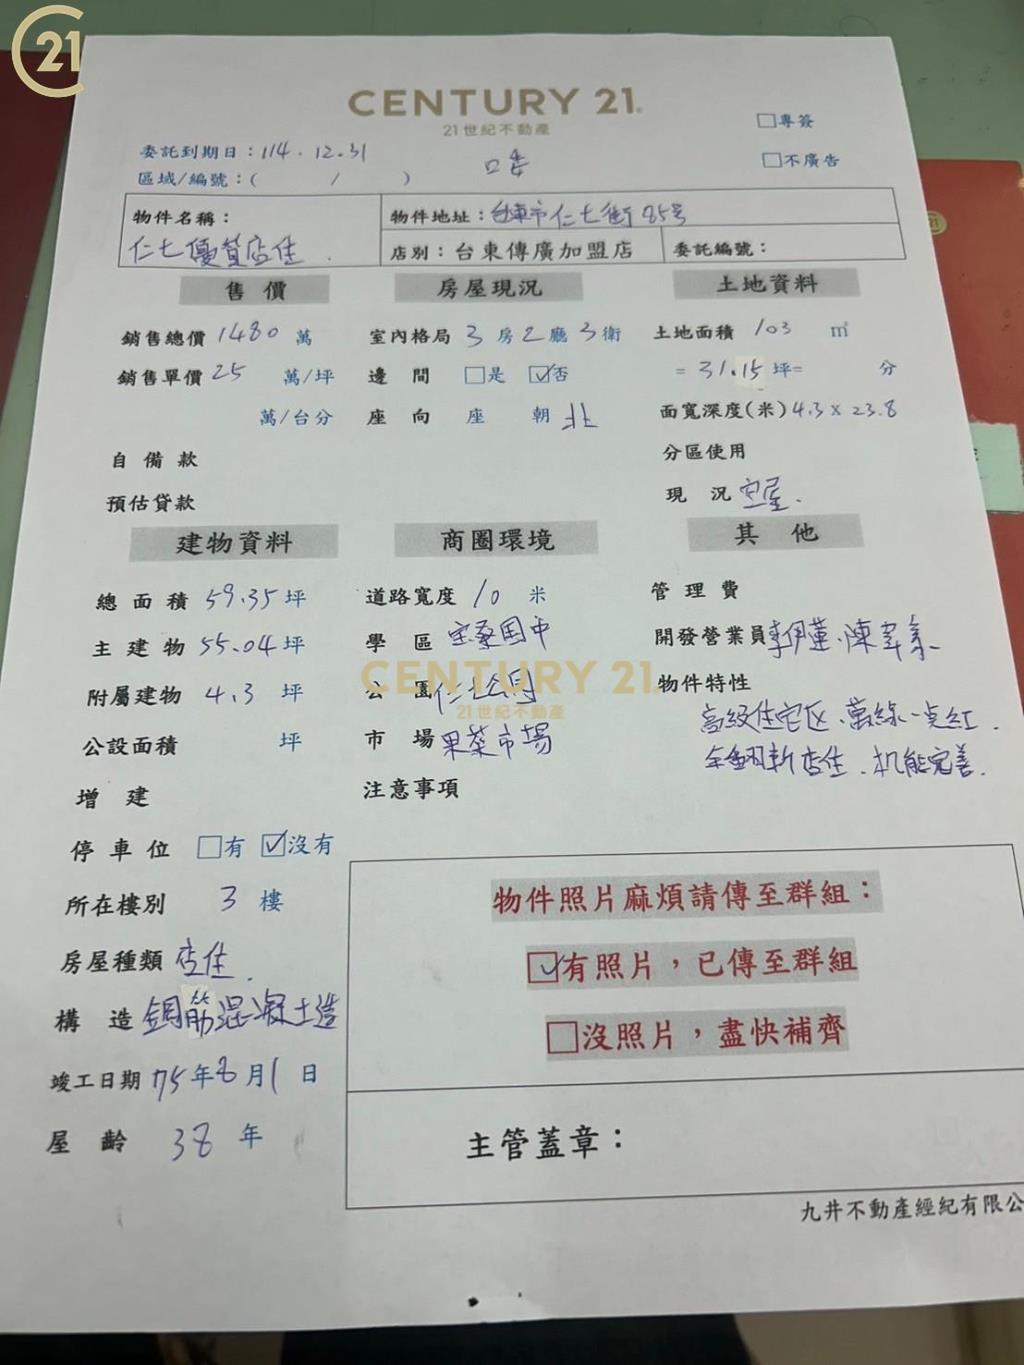 C21
CENTURY 21
21世紀不動產
□專簽
委託到期日：114.12.31
□不廣告
區域/編號：( / )
物件名稱：
仁七優質店住.
物件地址：台東市仁七街85号
店別：台東傳廣加盟店
委託編號：
售價
房屋現況
土地資料
銷售總價 1480 萬
室內格局 3 房 2 廳 3 衛
土地面積 103 ㎡
銷售單價 25 萬/坪
邊間 □是 ☑否
= 31.15 坪= 分
萬/台分
座向 座 朝 北
面寬深度(米) 4.3 x 23.8
自備款
分區使用
預估貸款
現況 空屋.
建物資料
商圈環境
其他
總面積 59.35 坪
道路寬度 10 米
管理費
主建物 55.04 坪
學區 宝桑国中
開發營業員
附屬建物 4.3 坪
公園
物件特性
CENTURY 21
21世紀不動產
高級住宅区、萬綠一点紅.
公設面積 坪
市場 果菜市場
全翻新店住.机能完善.
增建
注意事項
停車位 □有 ☑沒有
所在樓別 3 樓
物件照片麻煩請傳至群組：
房屋種類 店住.
☑有照片，已傳至群組
構造 鋼筋混凝土造
□沒照片，盡快補齊
竣工日期 75年8月1日
屋齡 38 年
主管蓋章：
九井不動產經紀有限公